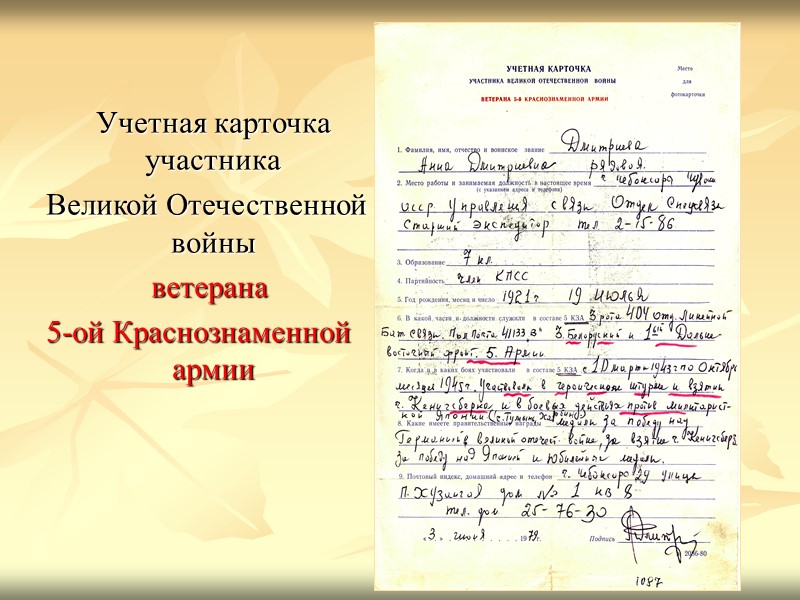 Учетная карточка
участника
Великой Отечественной
войны
ветерана
5-ой Краснознаменной
армии
УЧЕТНАЯ КАРТОЧКА
УЧАСТНИКА ВЕЛИКОЙ ОТЕЧЕСТВЕННОЙ ВОЙНЫ
ВЕТЕРАНА 5-Й КРАСНОЗНАМЕННОЙ АРМИИ
Место
для
фотокарточки
1. Фамилия, имя, отчество и воинское звание Дмитриева
Анна Дмитриевна рядовой.
2. Место работы и занимаемая должность в настоящее время г. Чебоксара
(с указанием адреса и телефона)
Управления связи Отдел Спецсвязи
Старший экспедитор тел 2-15-86
3. Образование 7 кл.
4. Партийность член КПСС
5. Год рождения, месяц и число 1921 г 19 июля
6. В какой части и должности служили в составе 5 КЗА 3 рота 404 отд. линейной
Бат связи. Пол Почта 41133 в" 3. Белорусский и 1ый Дальне
восточный фронт. 5. Армии
7. Когда и в каких боях участвовали в составе 5 КЗА с 10 марта 1943 г по Октябрь
месяц 1945 г. Участвовал в героическом штурме и взятии
г. Кенигсберга и в боевых действиях против милитарист-
ной Японии
8. Какие имеете правительственные награды медали за победу над
Германией в великой отечест. войне, за взятие г. Кенигсберг
за победу над Японией и юбилейные медали.
9. Почтовый индекс, домашний адрес и телефон г. Чебоксара 29 улица
П. Хузангая дом № 1 кв 8
тел. дом 25-76-30
«3» июня 1979 г. Подпись
2036-80
1087